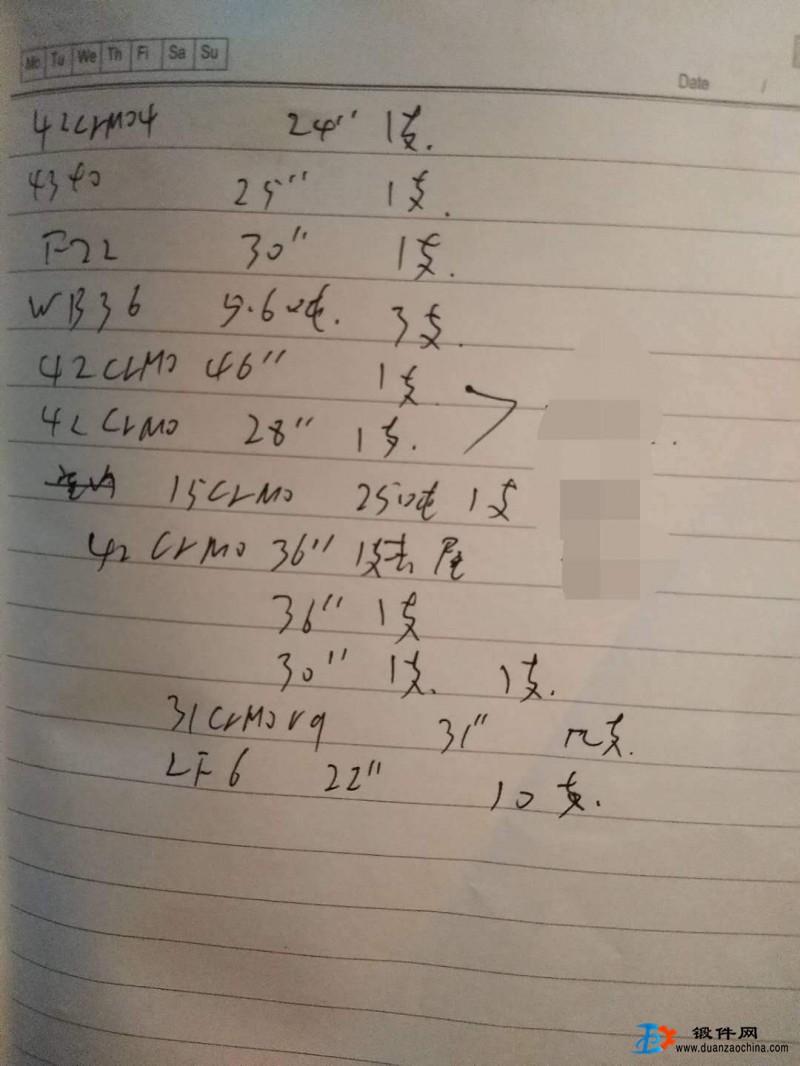 Mo Tu We Th Fri Sa Su
Date /
42CrMo4 24" 1支.
4340 25" 1支.
F22 30" 1支.
WB36 吨. 3支.
42CrMo 46" 1支.
42CrMo 28" 1支.
15CrMo 吨 1支
42CrMo 36" 1支 尾
36" 1支
30" 1支. 1支.
31CrMoV9 31" 支.
LF6 22" 10支.
锻件网
www.duanzaochina.com